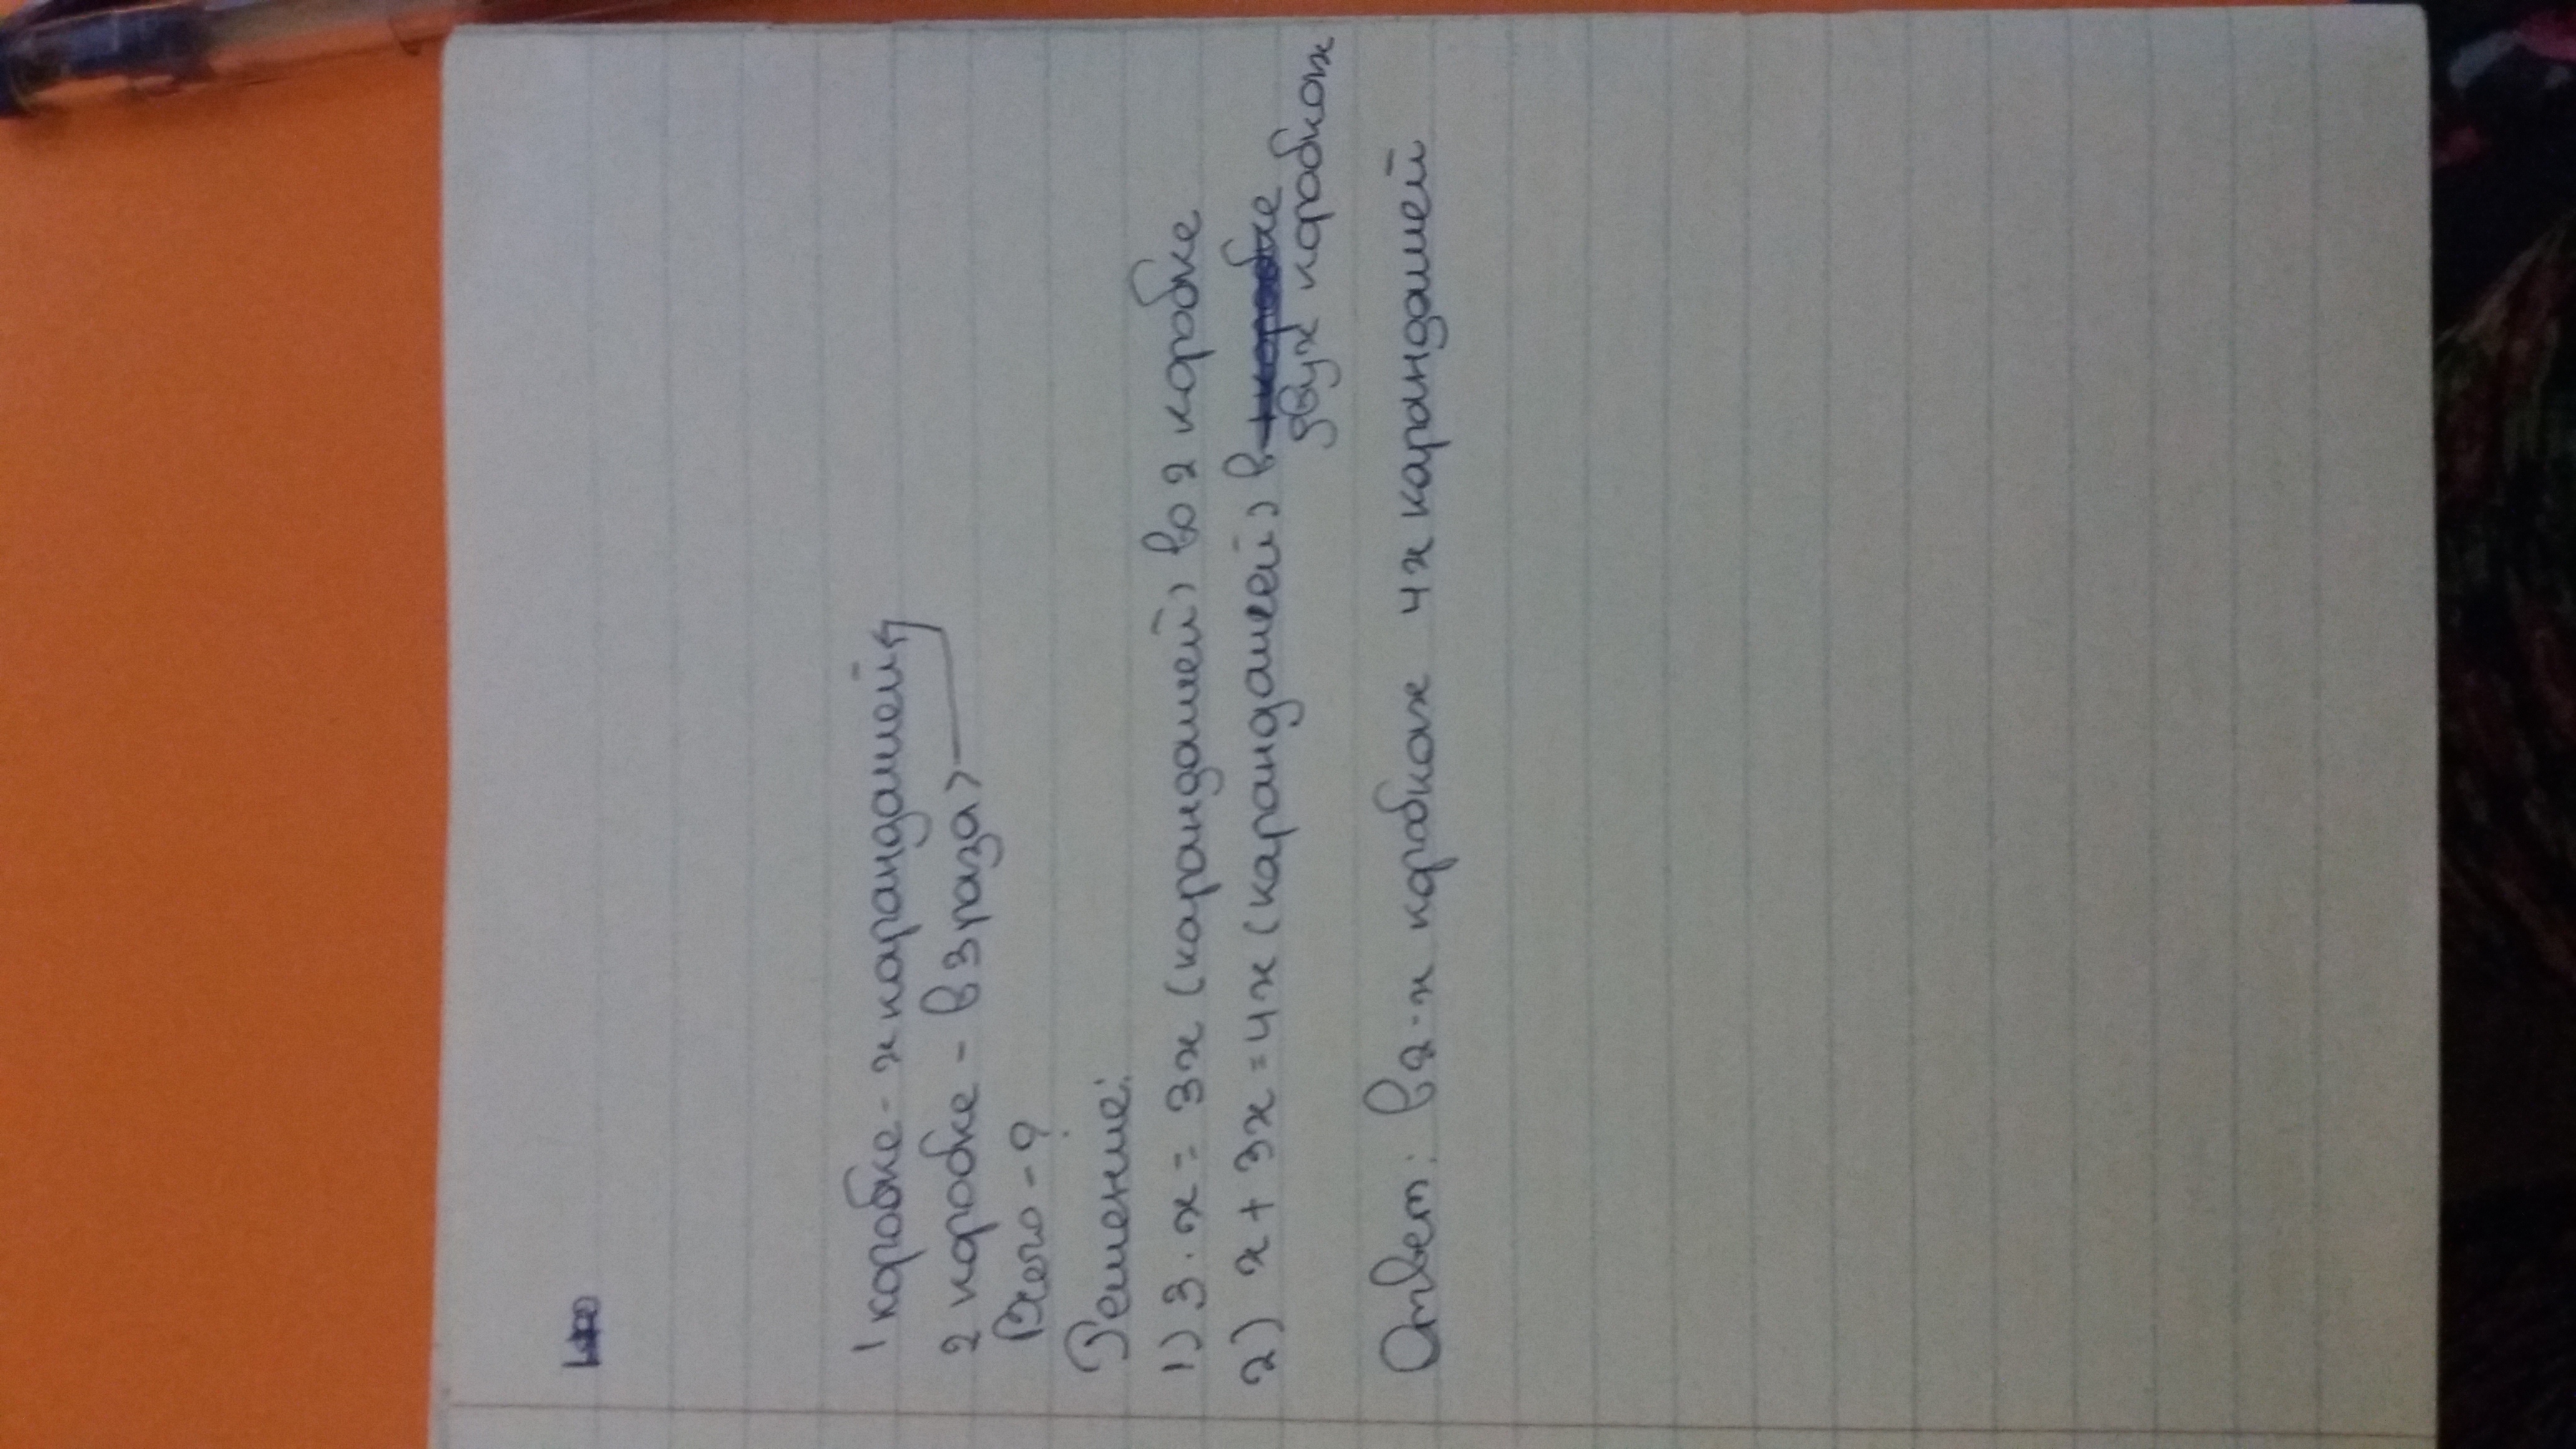 1 коробке - х карандашей
2 коробке - в 3 раза >
Всего - ?
Решение:
1) 3 · х = 3х (карандашей) во 2 коробке
2) х + 3х = 4х (карандашей) в 1 коробке
двух коробках
Ответ: в 2-х коробках 4х карандашей